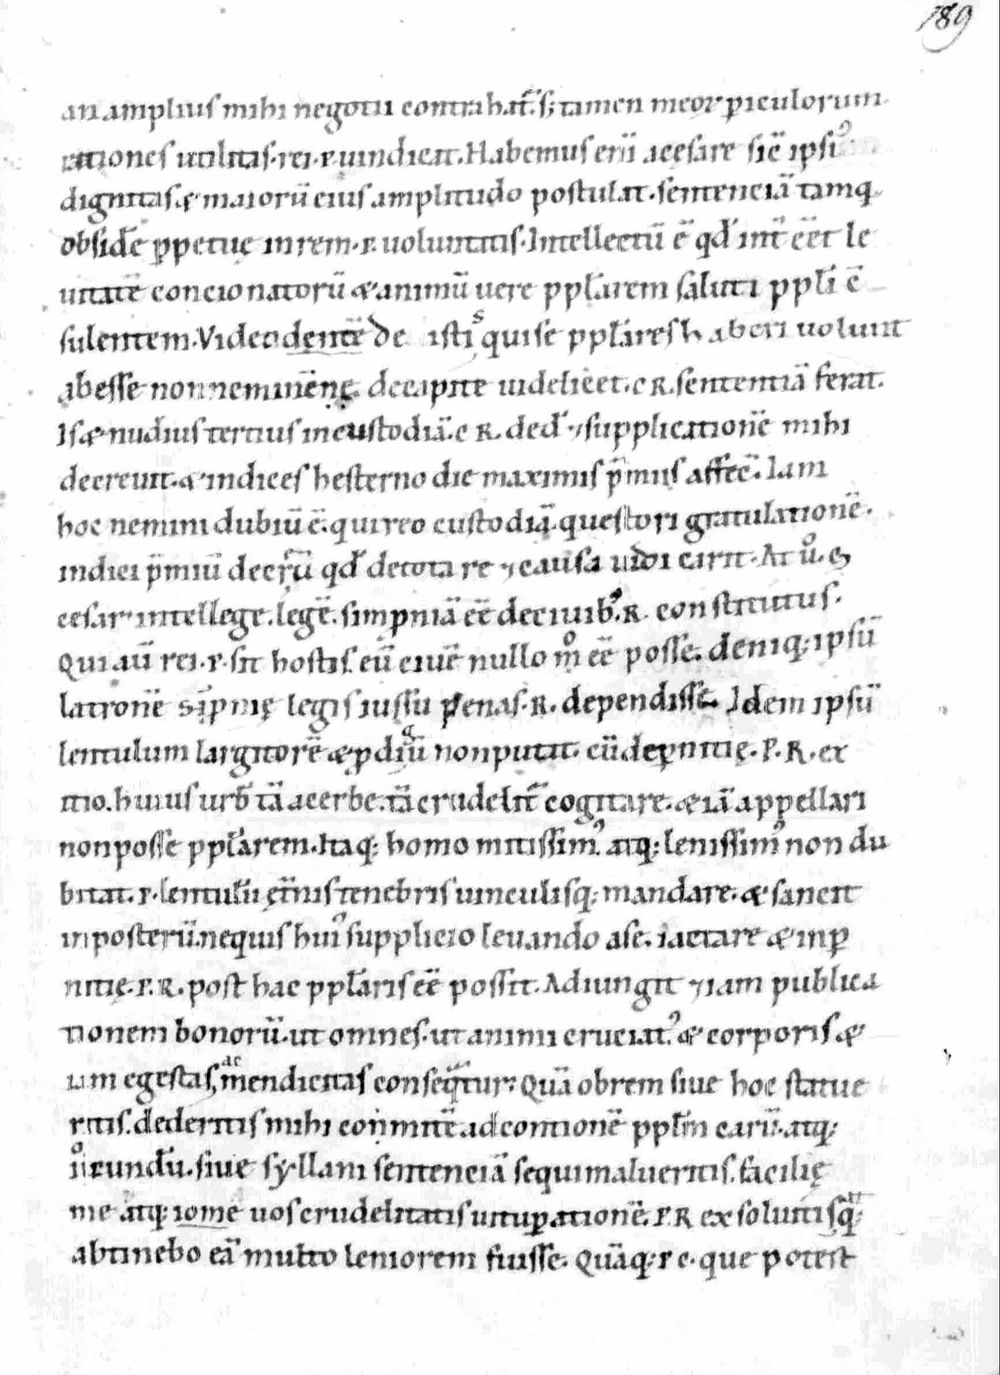 189
an amplius mihi negotii contrahat̃. s; tamen meoꝝ ꝑiculorum
rationes utilitas. rei. r. uindicat. Habemus enĩ acesare sic̃ ipsiꝰ
dignitas. & maiorũ eius amplitudo postulat. sentenciã tamq̃
obsidẽ ꝑpetuę in rem. r. uoluntatis. Intellectũ ẽ qđ int̃ ẽet le
uitatẽ concionatorũ & animũ uere ppl̃arem saluti ppl̃i c̃
sulentem. Videodentẽ de istis quise ppl̃ares haberi uolunt
abesse nonneminẽ nę. decapite uidelicet. c R. sententiã ferat.
Is & nudius tertius in custodiã. c R. ded̃ ⁊ supplicationẽ mihi
decreuit. & indices hesterno die maximis p̃miis affec̃. Iam
hoc nemini dubiũ ẽ. qui reo custodiã. questori gratulationẽ.
indici p̃miũ decr̃ũ qđ detota re ⁊ causa iudicarit. At ů. &
cesar intellege. legẽ. simpniã eẽ deciuibꝰ. R. constitutus.
Qui aũ rei. r. sit hostis. eũ ciuẽ nullo m̊ eẽ posse. deniq; ipsũ
latronẽ sĩpnię legis iussũ penas. R. dependisse. Idem ipsũ
lentulum largitorẽ & ꝓdigũ non putat. cũ deꝑnitię. P. R. ex
itio. huius urb̃ tã acerbe. tã crudelit̃ cogitare. & iã appellari
non posse ppl̃arem. Itaq; homo mitissimꝰ atq; lenissimꝰ non du
bitat. p. lentulũ ęt̃nis tenebris uinculisq; mandare. & sancit
inposterũ. nequis huiꝰ supplicio leuando ase. iactare & inꝑ
nitię. P. R. post hac ppl̃aris eẽ possit. Adiungit ⁊iam publica
tionem bonorũ. ut omnes. ut animi cruciatꝰ & corporis &
iam egestas, ac mendicitas conseq̃tur: Quã obrem siue hoc statue
ritis. dederitis mihi comitẽ ad contionẽ ppl̃m carũ. atq;
iůcundũ. siue syllani sentenciã sequi malueritis. facilię
me atq; iome uos crudelitatis uituꝑationẽ. P. R exsolutisq̃;
abtinebo eã multo leniorem fuisse. Quãq; r e. que potest